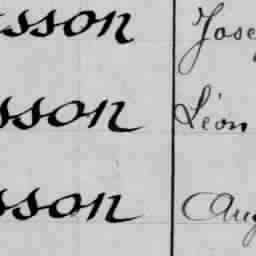 sson Jose
sson Léon
sson Aug